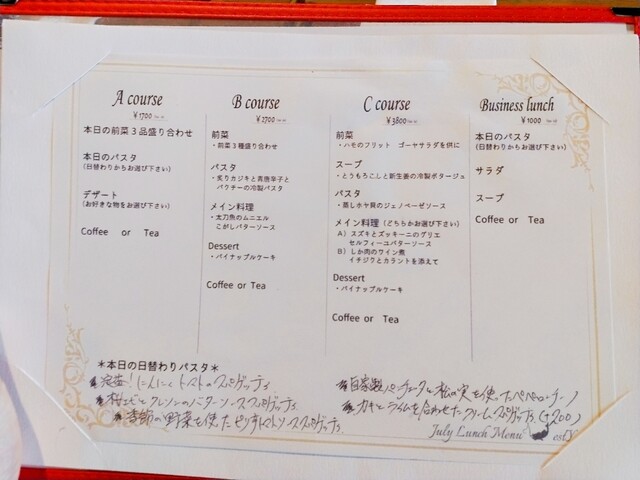 A course
¥1700
本日の前菜3品盛り合わせ
本日のパスタ
(日替わりからお選び下さい)
デザート
(お好きな物をお選び下さい)
Coffee or Tea
B course
¥2700
前菜
・前菜3種盛り合わせ
パスタ
・炙りカジキと青唐辛子と
パクチーの冷製パスタ
メイン料理
・太刀魚のムニエル
こがしバターソース
Dessert
・パイナップルケーキ
Coffee or Tea
C course
¥3800
前菜
・ハモのフリット ゴーヤサラダを供に
スープ
・とうもろこしと新生姜の冷製ポタージュ
パスタ
・蒸しホヤ貝のジェノベーゼソース
メイン料理(どちらかお選び下さい)
A)スズキとズッキーニのグリエ
セルフィーユバターソース
B)しか肉のワイン煮
イチジクとカラントを添えて
Dessert
・パイナップルケーキ
Coffee or Tea
Business lunch
¥1000
本日のパスタ
(日替わりからお選び下さい)
サラダ
スープ
Coffee or Tea
＊本日の日替わりパスタ＊
にんにくトマトのスパゲッティ
桜エビとクレソンのバターソーススパゲッティ
季節の野菜を使ったトマトソーススパゲッティ
自家製パンチェッタと松の実を使ったペペロンチーノ
カキとライムを合わせたクリームスパゲッティ(+200)
July Lunch Menu